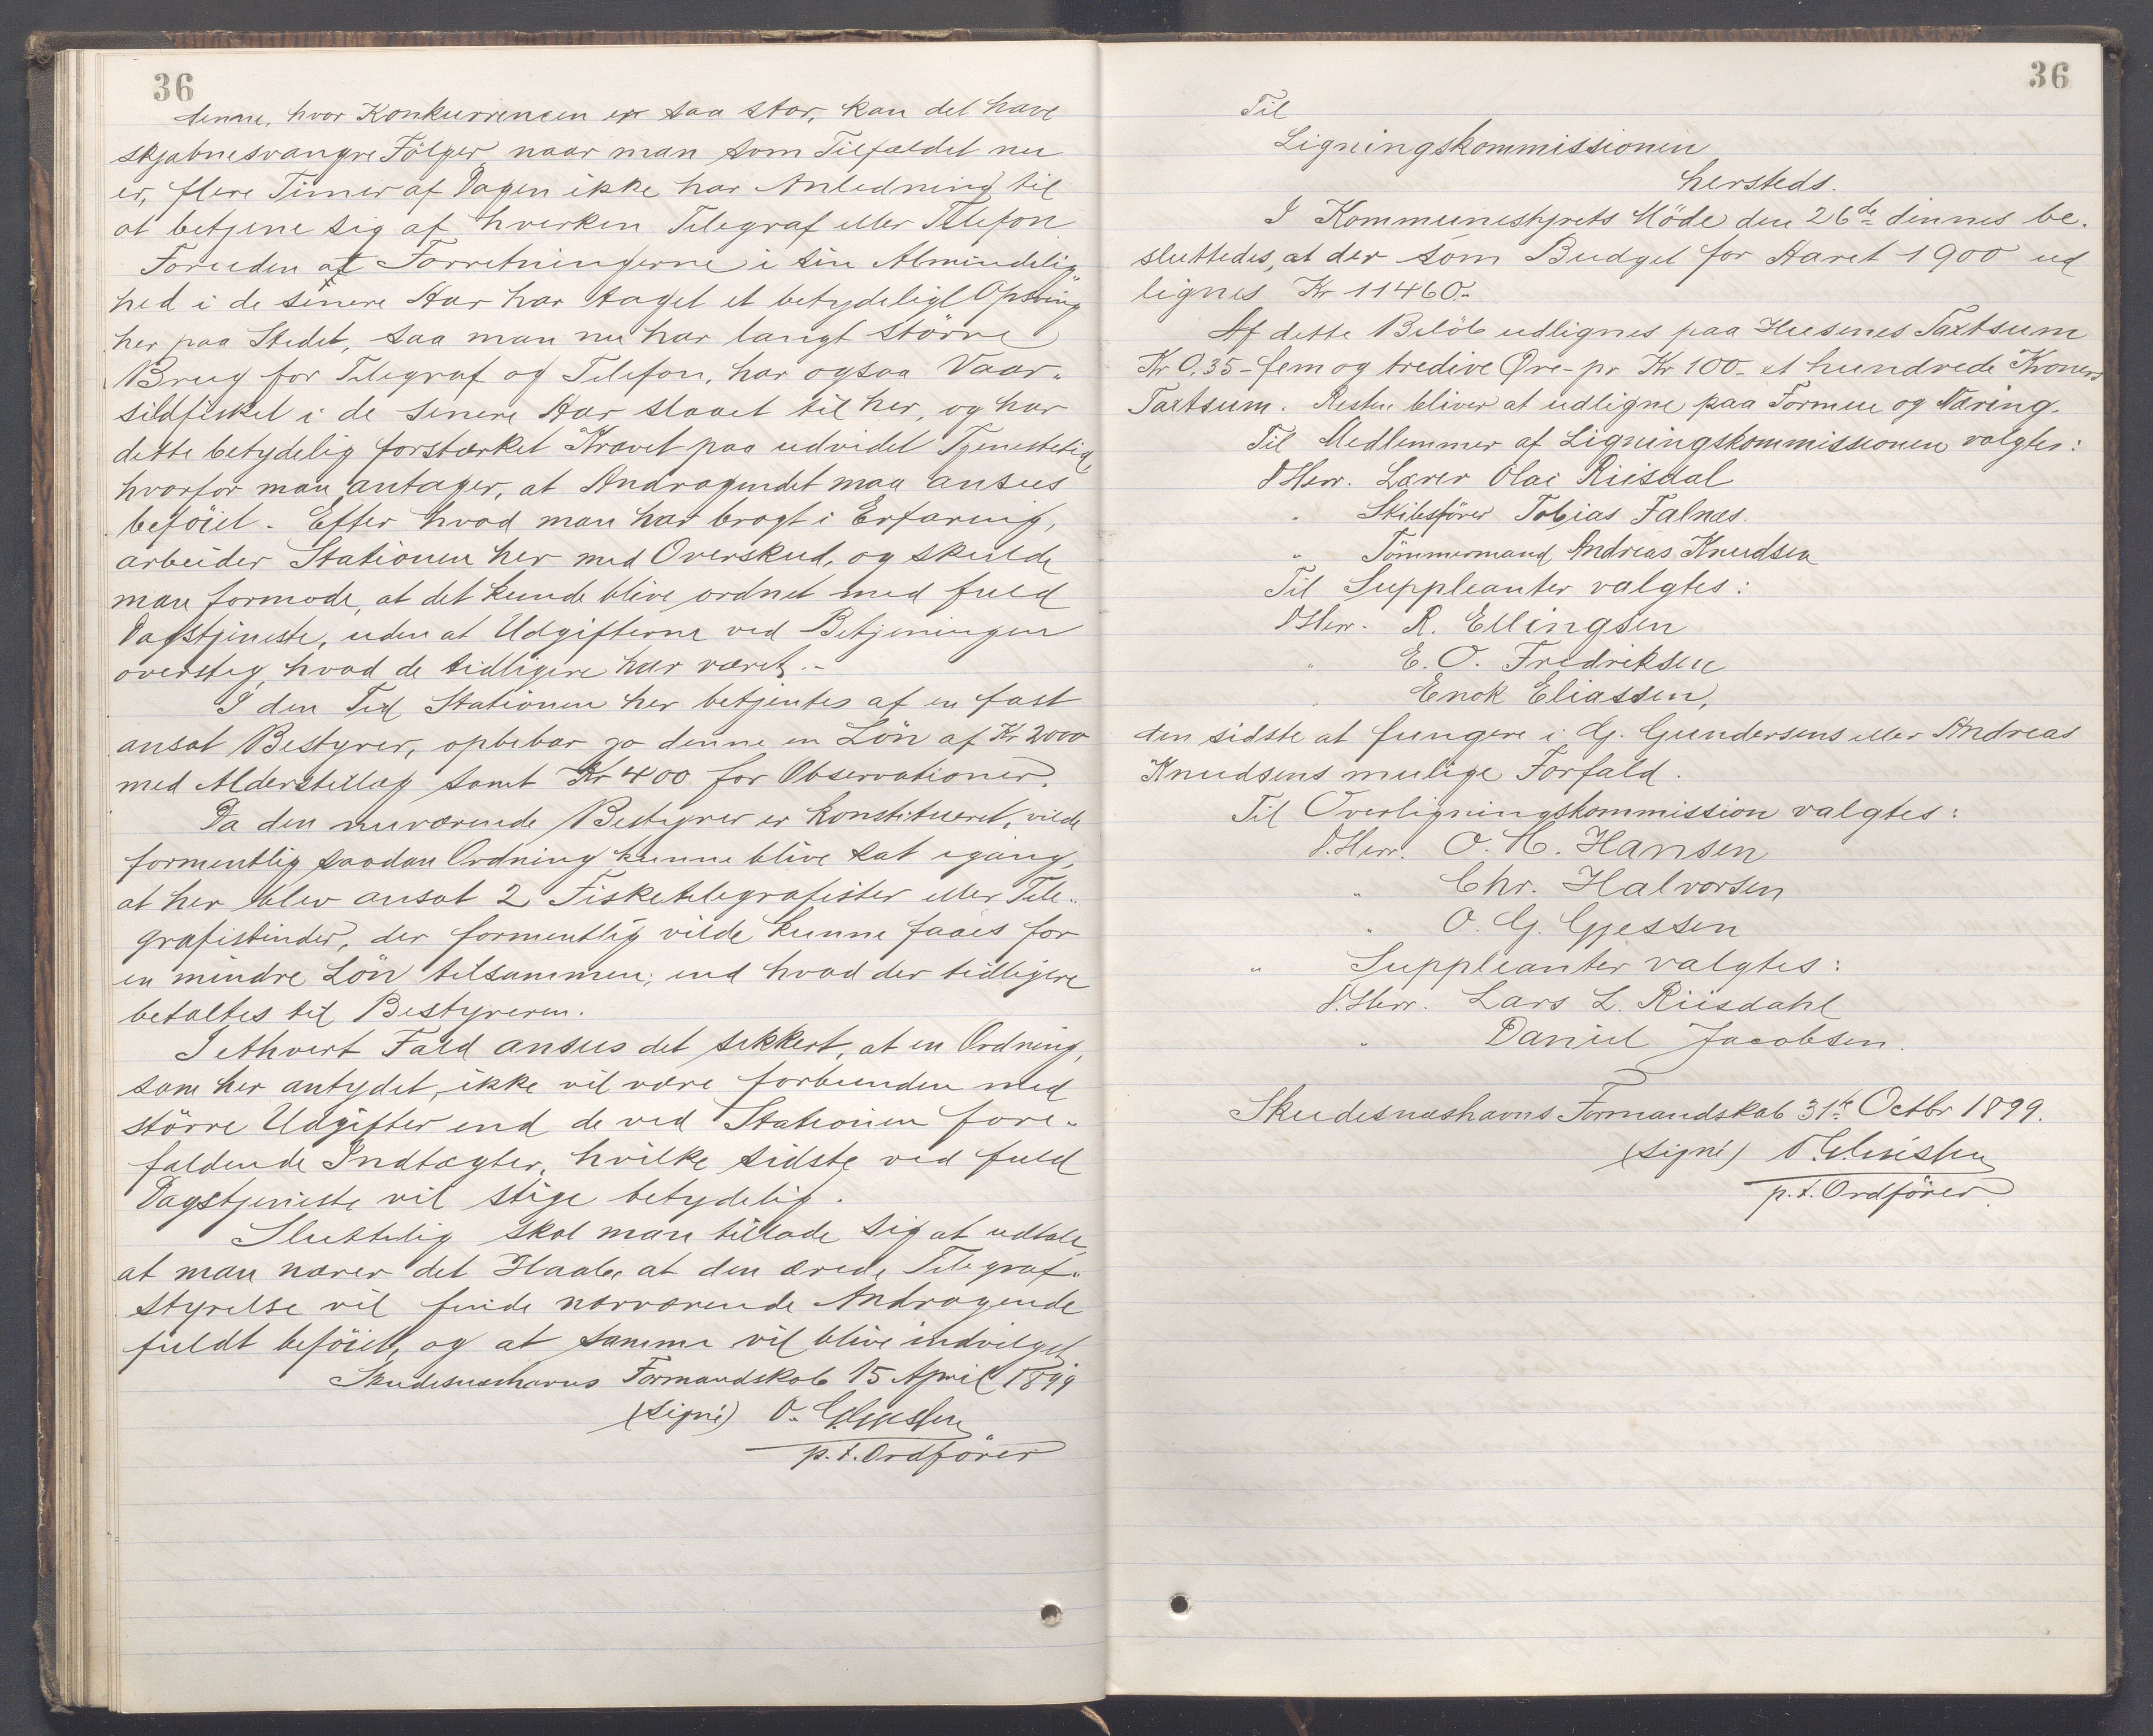 36
denne, hvor Konkurrencen er saa stor, kan det have
skjæbnesvangre Følger, naar man som Tilfældet nu
er, flere Timer af Dagen ikke har Anledning til
at betjene sig af hverken Telegraf eller Telefon
Foruden at Forretningerne i sin Almindelig-
hed i de senere Aar har taget et betydeligt Opsving
her paa Stedet, saa man nu har langt større
Brug for Telegraf og Telefon, har ogsaa Vaar-
sildfisket i de senere Aar slaaet til her, og har
dette betydelig forstærket Kravet paa udvidet Tjenestetid,
hvorfor man antager, at Andragendet maa ansees
beføiet. Efter hvad man har bragt i Erfaring,
arbeider Stationen her med Overskud, og skulde
man formode, at det kunde blive ordnet med fuld
Dagstjeneste, uden at Udgifterne ved Betjeningen
oversteg hvad de tidligere har været.-
I den Tid Stationen her betjentes af en fast
ansat Bestyrer, opbebar jo denne en Løn af Kr 2000
med Alderstillæg samt Kr 400 for Observationer.
Da den nuværende Bestyrer er konstitueret, vilde
formentlig saadan Ordning kunne blive sat igang,
at her blev ansat 2 Fisketelegrafister eller Tele-
grafistinder, der formentlig vilde kunne faaes for
en mindre Løn tilsammen, end hvad der tidligere
betaltes til Bestyreren.
I ethvert Fald ansees det sikkert, at en Ordning,
som her antydet, ikke vil være forbunden med
større Udgifter end de ved Stationen fore-
faldende Indtægter, hvilke sidste ved fuld
Dagstjeneste vil stige betydelig.
Sluttelig skal man tillade sig at udtale,
at man nærer det Haab, at den ærede Telegraf-
styrelse vil finde nærværende Andragende
fuldt beføiet, og at samme vil blive indvilget
Skudesneshavns Formandskab 15 April 1899
(signé) O.
p.t. Ordfører
36
Til
Ligningskommissionen
hersteds.
I Kommunestyrets Møde den 26de dennes be-
sluttedes, at der som Budget for Aaret 1900 ud
lignes Kr 11460.-
Af dette Beløb udlignes paa Husenes Taxtsum
Kr 0,35 - fem og tredive Øre - pr Kr 100 - et hundrede Kroners
Taxtsum. Resten bliver at udligne paa Formue og Næring.
Til Medlemmer af Ligningskommissionen valgtes:
D'Herr. Lærer Olai Riisdal
" Skibsfører Tobias Falnæs.
" Tømmermand Andreas Knudsen
Til Suppleanter valgtes:
D'Herr. R. Ellingsen
" E. O. Fredriksen
" Enok Eliassen,
den sidste at fungere i G. Gundersens eller Andreas
Knudsens mulige Forfald.
Til Overligningskommission valgtes:
D.Herr. O. H. Hansen
" Chr. Halvorsen
" O. G. Gjessen
" Suppleanter valgtes:
D.Herr. Lars L. Riisdahl
" Daniel Jacobsen.
Skudesnæshavns Formandskab 31te Octbr 1899.
(signé)
p.t. Ordfører